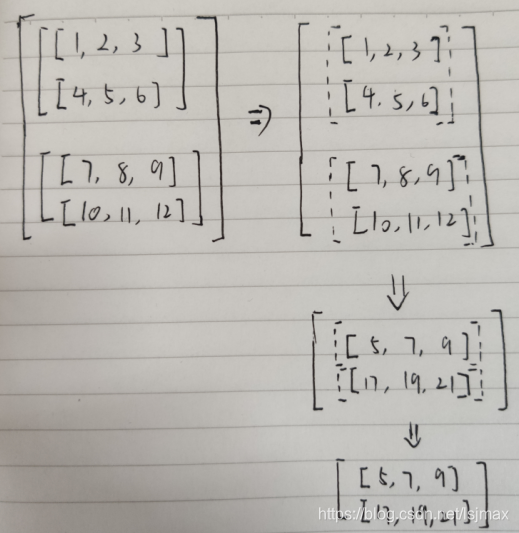 [[[1, 2, 3]
[4, 5, 6]]
[[7, 8, 9]
[10, 11, 12]]]
⇒
[[[1, 2, 3]
[4. 5, 6]]
[[7, 8, 9]
[10, 11, 12]]]
⇓
[[[5, 7, 9]]
[[17, 19, 21]]]
⇓
[[5, 7, 9]
[17, 19, 21]]
https://blog.csdn.net/lsjmax